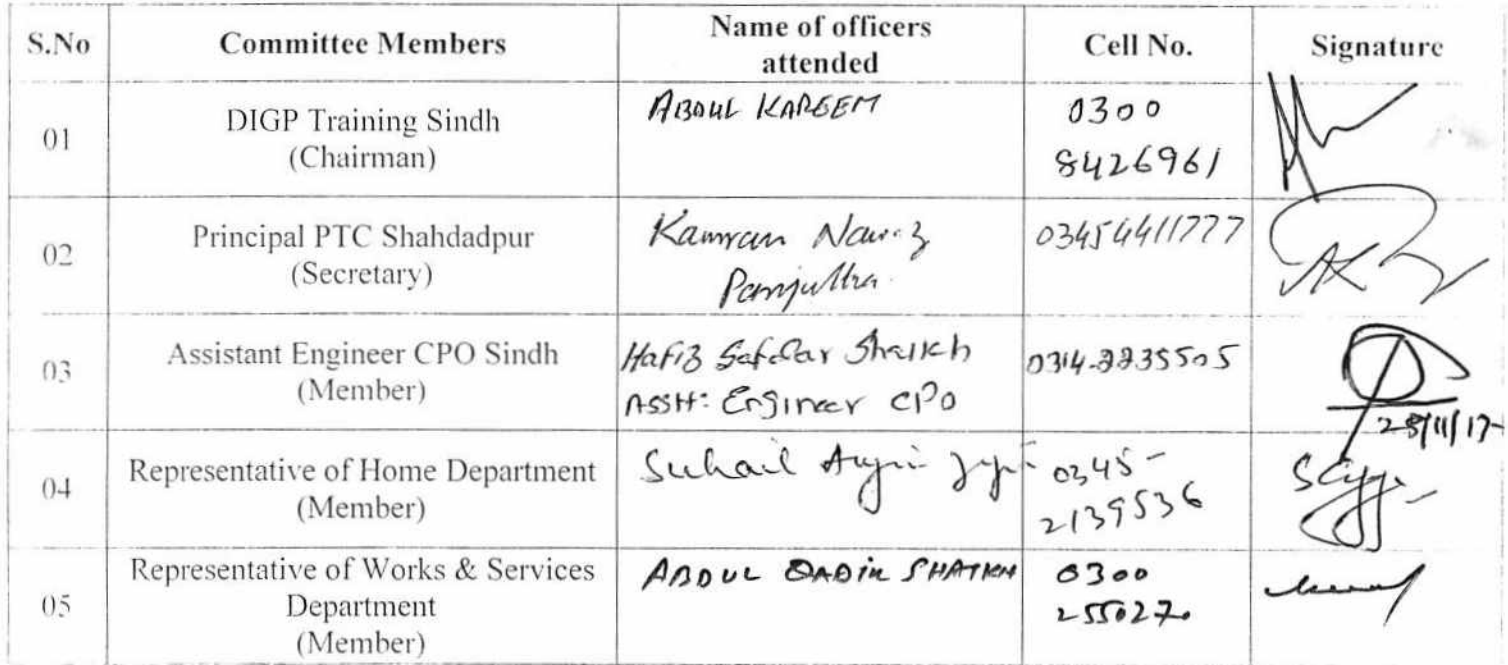 S.No Committee Members Name of officers attended Cell No. Signature
01 DIGP Training Sindh (Chairman) ABDUL KAREEM 0300 8426961
02 Principal PTC Shahdadpur (Secretary) Kamran Nawaz Panjutha 03454411777
03 Assistant Engineer CPO Sindh (Member) Hafiz Safdar Shaikh ASSTT: Engineer CPO 0314-2235505
25/11/17
04 Representative of Home Department (Member) Suhail 0345-2139536
05 Representative of Works & Services Department (Member) ABDUL QADIR SHAIKH 0300